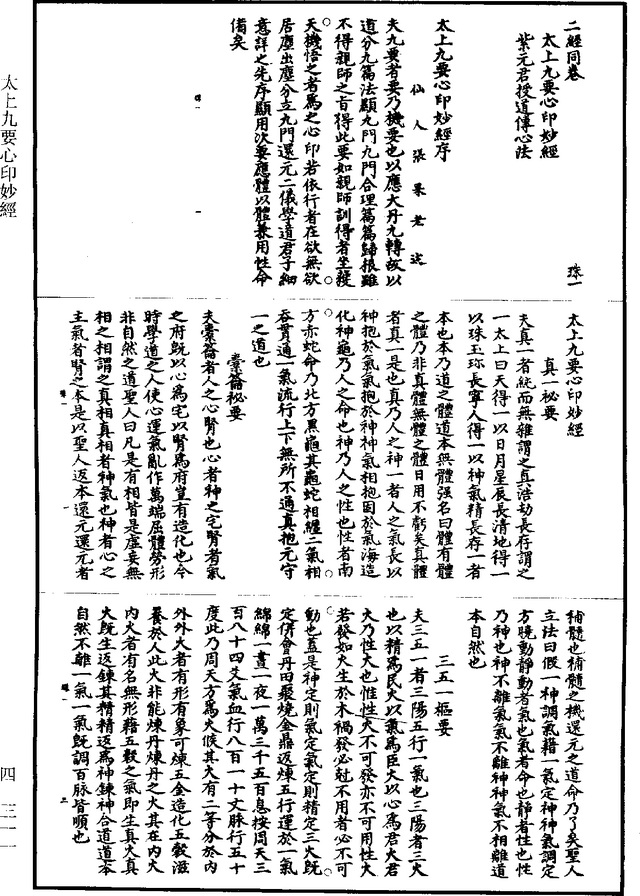 二經同卷
太上九要心印妙經
紫元君授道傳心法
珠一
太上九要心印妙經序
仙人張果老述
夫九要者要乃機要也以應大丹九轉故以
道分九篇法顯九門九門合理篇篇歸根雖
不得親師之旨得此要如親師訓得者坐獲
天機悟之者為之心印若依行者在欲無欲
居塵出塵分立九門還元二儀學道君子細
意詳之先序顯用次要應體以體兼用性命
備矣
太上九要心印妙經
真一秘要
夫真一者純而無雜謂之真浩劫長存謂之
一太上曰天得一以日月星辰長清地得一
以珠玉珍長寧人得一以神氣精長存一者
本也本乃道之體道本無體強名曰體有體
之體乃非真體無體之體日用不虧矣真體
者真一是也真乃人之神一者人之氣長以
神抱於氣氣抱於神神氣相抱固於氣海造
化神龜乃人之命也神乃人之性也性者南
方赤蛇命乃北方黑龜其龜蛇相纏二氣相
吞貫通一氣流行上下無所不通真抱元守
一之道也
橐籥秘要
夫橐籥者人之心腎也心者神之宅腎者氣
之府既以心為宅以腎為府豈有造化也今
時學道之人使心運氣亂作萬端屈體勞形
非自然之道聖人曰凡是有相皆是虛妄無
相之相謂之真相真相者神氣也神者心之
主氣者腎之本是以聖人返本還元還元者
補髓也補髓之機還元之道命乃了矣聖人
立法曰假一神調氣藉一氣定神神氣調定
方曉動靜動者氣也氣者命也靜者性也性
乃神也神不離氣氣不離神神氣不相離道
本自然也
三五一樞要
夫三五一者三陽五行一氣也三陽者三火
也以精為民火以氣為臣火以心為君火君
火乃性火也惟性火不可發亦不可用性火
若發如火生於木禍發必尅不用者必不可
動也蓋是神定則氣定氣定則精定三火既
定併會丹田聚燒金鼎返煉五行運於一氣
綿綿一晝一夜一萬三千五百息按周天三
百八十四爻氣血行八百一十丈脉行五十
度此乃周天方為火候其火有二等分於內
外外火者有形有象可煉五金造化五穀滋
養於人此火非能煉丹煉丹之火其在內火
內火者有名無形藉五穀之氣即生真火真
火既生返鍊其精精返為神鍊神合道道本
自然不離一氣一氣既調百脉皆順也
太上九要心印妙經
四
三一一